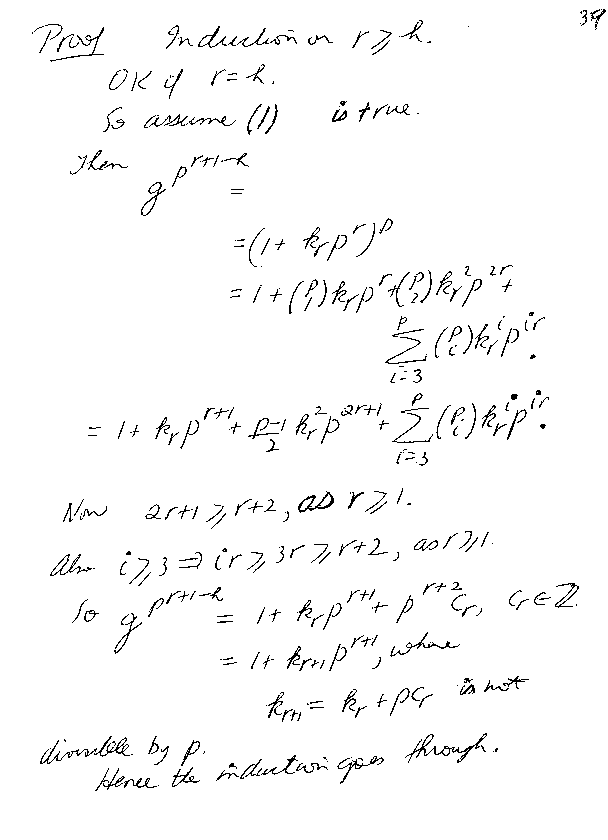 39
Proof Induction on r ⩾ h.
OK if r = h.
So assume (1) is true.
Then g^{p^{r+1-h}} =
= (1 + k_r p^r)^p
= 1 + \binom{p}{1} k_r p^r + \binom{p}{2} k_r^2 p^{2r} +
\sum_{i=3}^{p} \binom{p}{i} k_r^i p^{ir}.
= 1 + k_r p^{r+1} + \frac{p-1}{2} k_r^2 p^{2r+1} + \sum_{i=3}^{p} \binom{p}{i} k_r^i p^{ir}.
Now 2r+1 ⩾ r+2, as r ⩾ 1.
Also i ⩾ 3 ⇒ ir ⩾ 3r ⩾ r+2, as r ⩾ 1.
So g^{p^{r+1-h}} = 1 + k_r p^{r+1} + p^{r+2} c_r, c_r ∈ ℤ.
= 1 + k_{r+1} p^{r+1}, where
k_{r+1} = k_r + p c_r is not
divisible by p.
Hence the induction goes through.